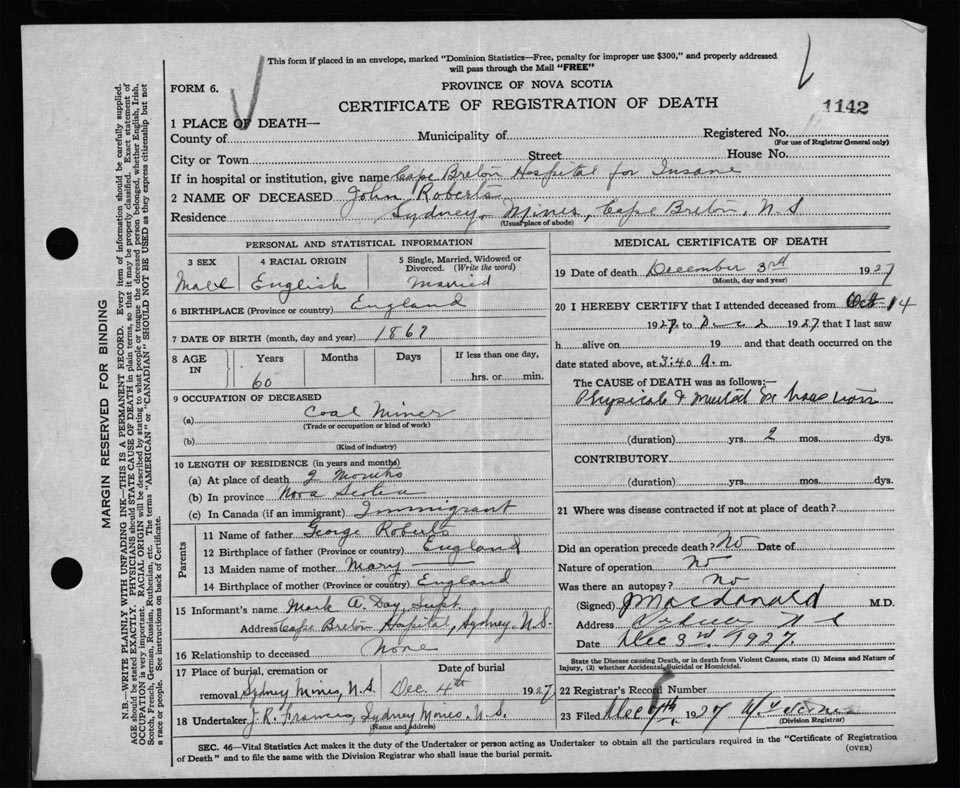 This form if placed in an envelope, marked "Dominion Statistics—Free, penalty for improper use $300," and properly addressed
will pass through the Mail "FREE"
FORM 6.
PROVINCE OF NOVA SCOTIA
CERTIFICATE OF REGISTRATION OF DEATH
1142
1 PLACE OF DEATH—
County of Municipality of Registered No.
(For use of Registrar General only)
City or Town Street House No.
If in hospital or institution, give name Cape Breton Hospital for Insane
2 NAME OF DECEASED John Roberts
Residence Sydney Mines, Cape Breton, N.S
(Usual place of abode)
PERSONAL AND STATISTICAL INFORMATION
3 SEX 4 RACIAL ORIGIN 5 Single, Married, Widowed or
Divorced. (Write the word)
Male English Married
6 BIRTHPLACE (Province or country) England
7 DATE OF BIRTH (month, day and year) 1867
8 AGE IN Years Months Days If less than one day,
60 hrs. or min.
9 OCCUPATION OF DECEASED
(a) Coal Miner
(Trade or occupation or kind of work)
(b)
(Kind of industry)
10 LENGTH OF RESIDENCE (in years and months)
(a) At place of death 2 Months
(b) In province Nova Scotia
(c) In Canada (if an immigrant) Immigrant
Parents
11 Name of father George Roberts
12 Birthplace of father (Province or country) England
13 Maiden name of mother Mary
14 Birthplace of mother (Province or country) England
15 Informant's name Mark A. Day, Supt
Address Cape Breton Hospital, Sydney. N.S.
16 Relationship to deceased None
17 Place of burial, cremation or Date of burial
removal Sydney Mines, N.S. Dec. 4th 1927
18 Undertaker J.R. Francis, Sydney Mines. N.S.
(Name and address)
MEDICAL CERTIFICATE OF DEATH
19 Date of death December 3rd 1927
(Month, day and year)
20 I HEREBY CERTIFY that I attended deceased from Oct 14
1927 to Dec 2 1927 that I last saw
h alive on 19 and that death occurred on the
date stated above, at 3:40 a. m.
The CAUSE of DEATH was as follows:—
Physical & mental
(duration) yrs. 2 mos. dys.
CONTRIBUTORY
(duration) yrs. mos. dys.
21 Where was disease contracted if not at place of death?
Did an operation precede death? No Date of
Nature of operation No
Was there an autopsy? No
(Signed) J Macdonald M.D.
Address Sydney N S
Date Dec 3rd 1927.
State the Disease causing Death, or in death from Violent Causes, state (1) Means and Nature of
Injury, (2) whether Accidental, Suicidal or Homicidal.
22 Registrar's Record Number
23 Filed Dec 7th, 1927
(Division Registrar)
SEC. 46—Vital Statistics Act makes it the duty of the Undertaker or person acting as Undertaker to obtain all the particulars required in the "Certificate of Registration
of Death" and to file the same with the Division Registrar who shall issue the burial permit.
(OVER)
MARGIN RESERVED FOR BINDING
N.B.—WRITE PLAINLY WITH UNFADING INK—THIS IS A PERMANENT RECORD. Every item of information should be carefully supplied.
AGE should be stated EXACTLY. PHYSICIANS should STATE CAUSE OF DEATH in plain terms, so that it may be properly classified. Exact statement of
OCCUPATION is very important. RACIAL ORIGIN will be described by stating to what people or tongue the deceased person belonged, whether English, Irish,
Scotch, French, German, Russian, Ruthenian, etc. The terms "AMERICAN" or "CANADIAN" SHOULD NOT BE USED as they express citizenship but not
a race or people. See instructions on back of Certificate.